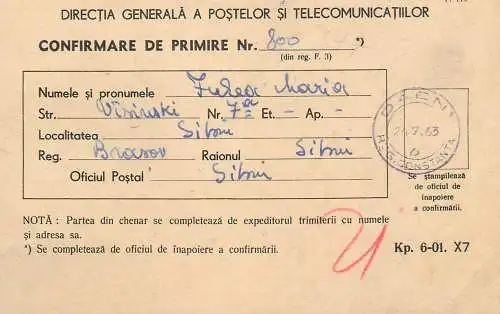 DIRECȚIA GENERALĂ A POȘTELOR ȘI TELECOMUNICAȚIILOR
CONFIRMARE DE PRIMIRE Nr. 800 *)
(din reg. F. 3)
Numele și pronumele Maria
Str. Vîsinski Nr. 7a Et. - Ap. -
Localitatea Sibiu
Reg. Brasov Raionul Sibiu
Oficiul Poștal Sibiu
7.63
CONSTANTA
Se ștampilează
de oficiul de
înapoiere
a confirmării.
NOTĂ : Partea din chenar se completează de expeditorul trimiterii cu numele
și adresa sa.
*) Se completează de oficiul de înapoiere a confirmării.
Kp. 6-01. X7